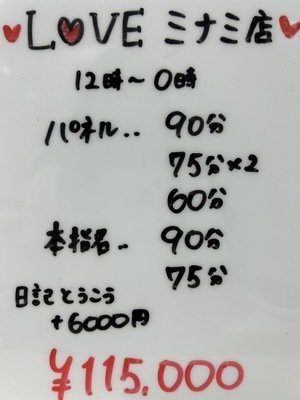 ♥LOVE ミナミ店♥
12時〜0時
パネル.. 90分
75分×2
60分
本指名.. 90分
75分
日記とうこう
+6000円
¥115,000